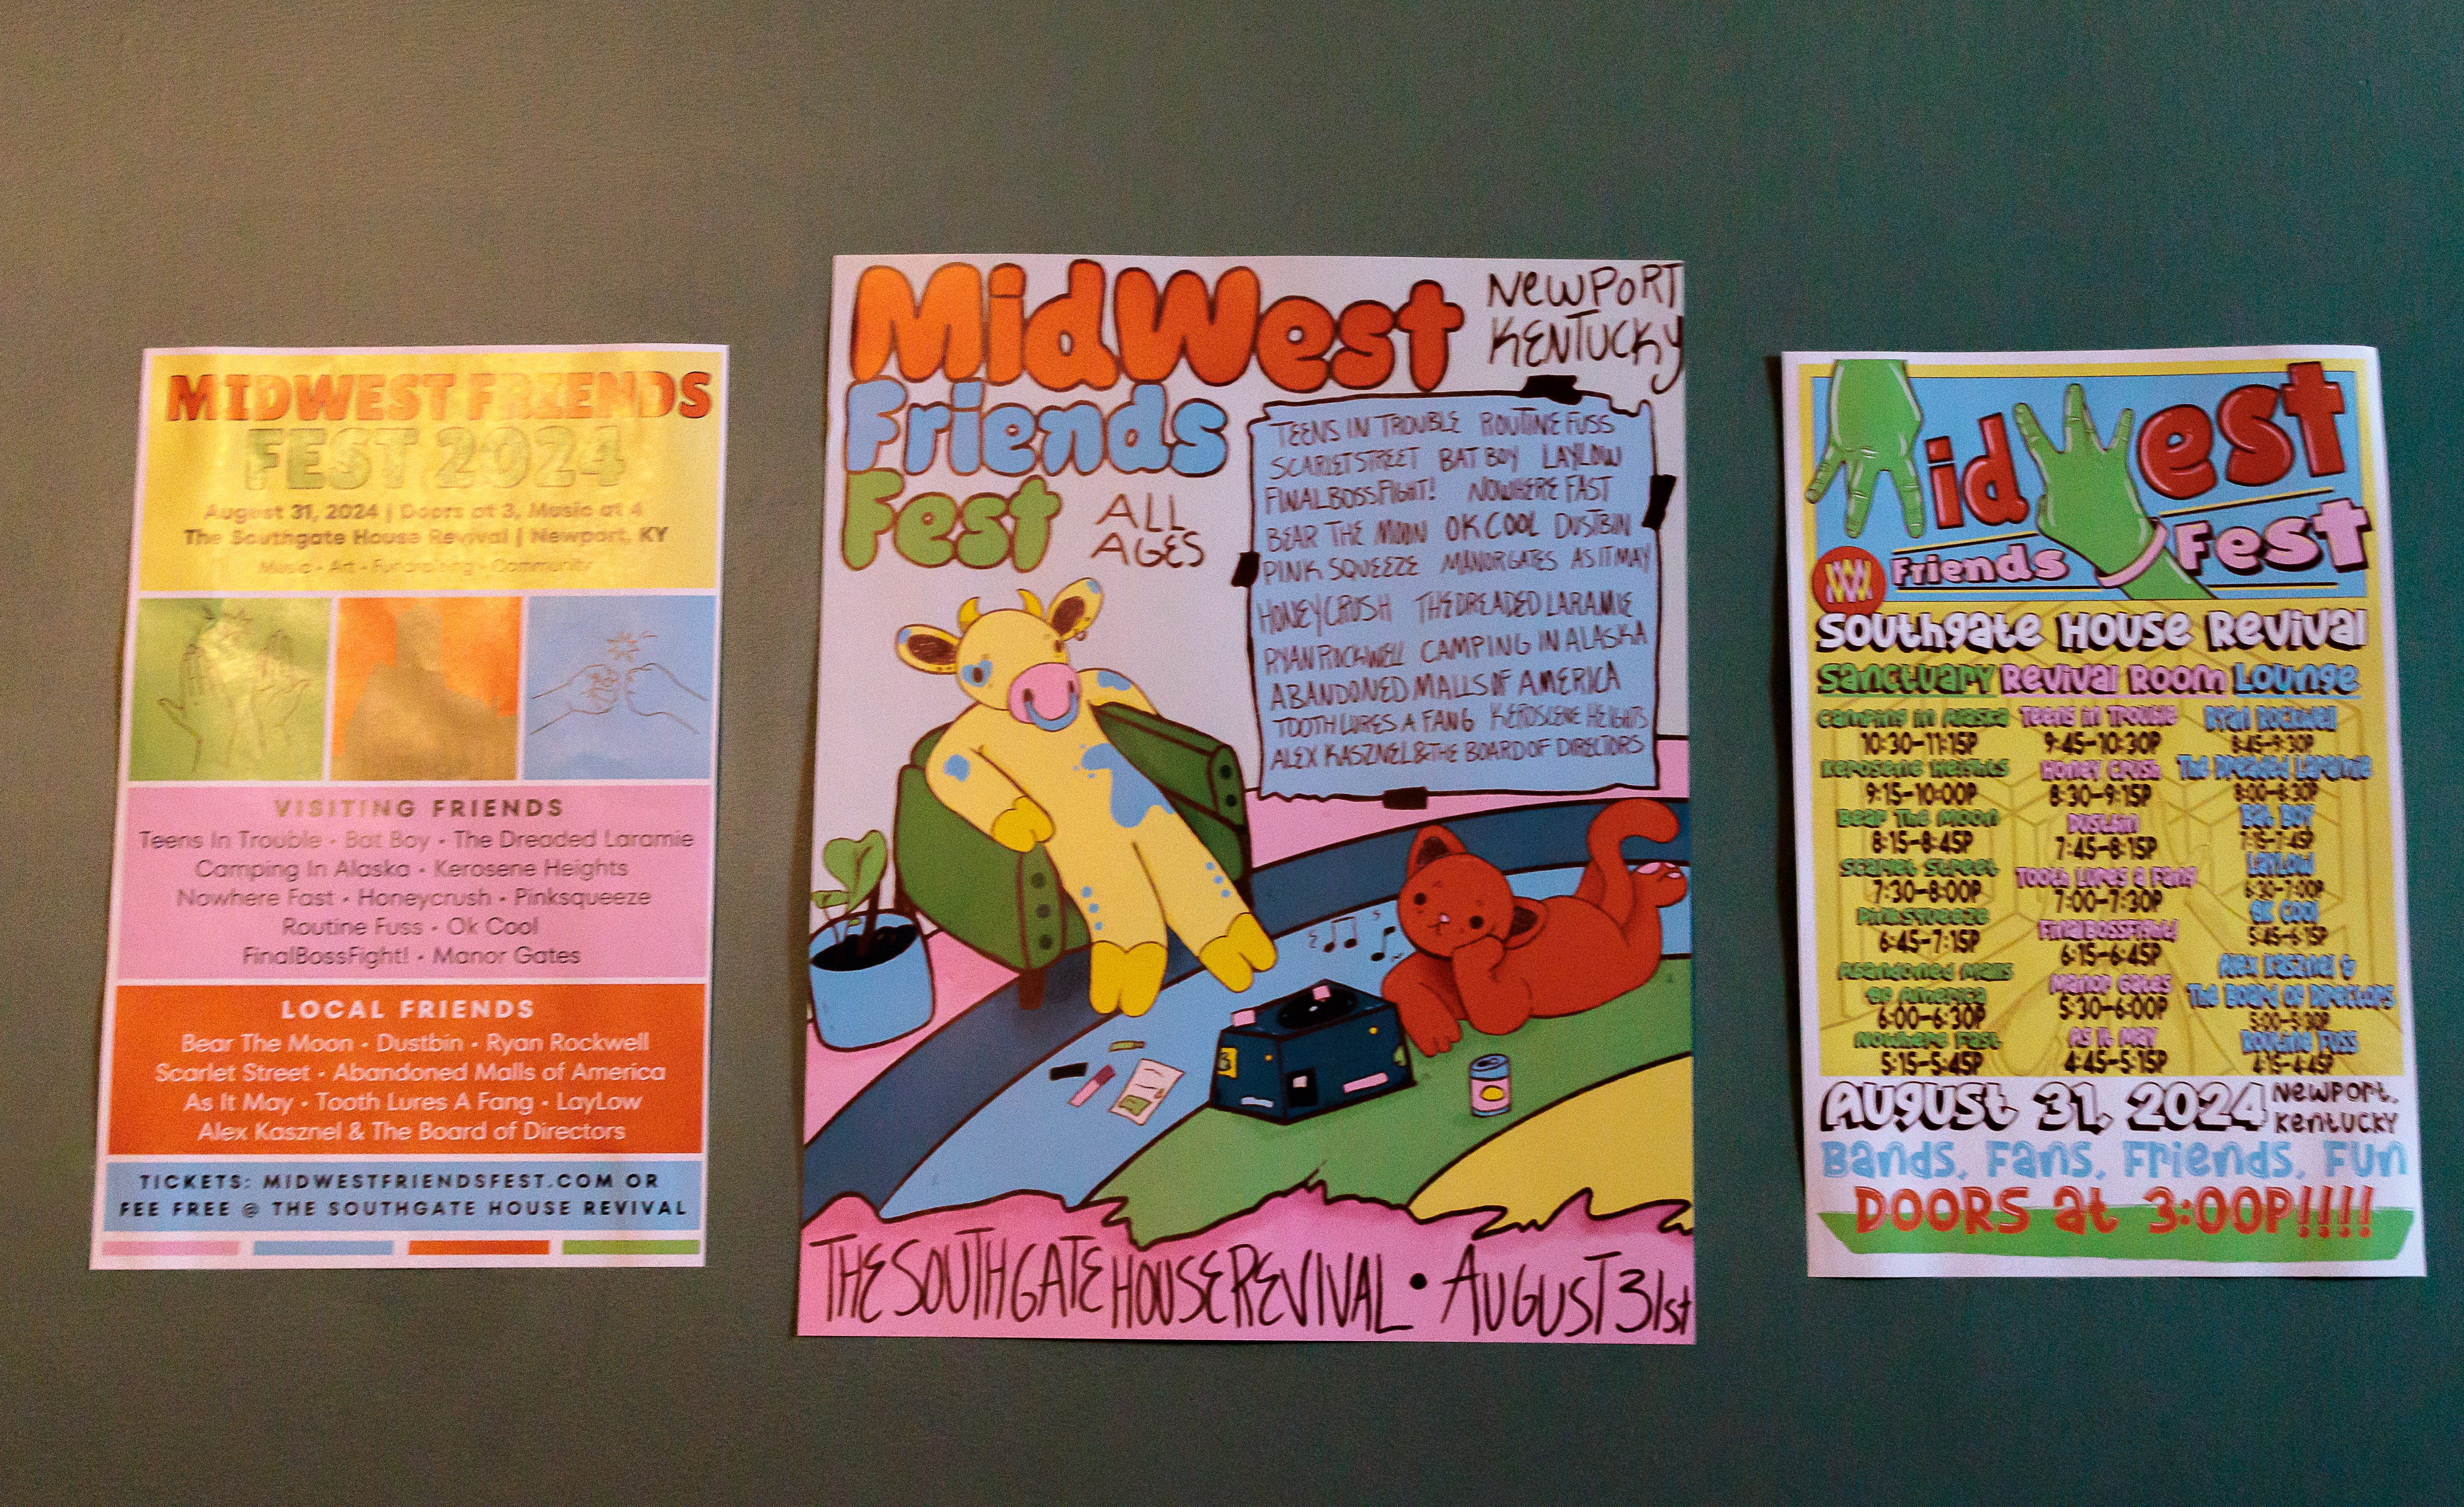 MIDWEST FRIENDS
FEST 2024
August 31, 2024 | Doors at 3, Music at 4
The Southgate House Revival | Newport, KY
Music • Art • Fundraising • Community
VISITING FRIENDS
Teens In Trouble • Bat Boy • The Dreaded Laramie
Camping In Alaska • Kerosene Heights
Nowhere Fast • Honeycrush • Pinksqueeze
Routine Fuss • Ok Cool
FinalBossFight! • Manor Gates
LOCAL FRIENDS
Bear The Moon • Dustbin • Ryan Rockwell
Scarlet Street • Abandoned Malls of America
As It May • Tooth Lures A Fang • LayLow
Alex Kasznel & The Board of Directors
TICKETS: MIDWESTFRIENDSFEST.COM OR
FEE FREE @ THE SOUTHGATE HOUSE REVIVAL
MidWest
Friends
Fest
ALL
AGES
NEWPORT
KENTUCKY
TEENS IN TROUBLE ROUTINE FUSS
SCARLET STREET BAT BOY LAYLOW
FINALBOSSFIGHT! NOWHERE FAST
BEAR THE MOON OK COOL DUSTBIN
PINK SQUEEZE MANOR GATES AS IT MAY
HONEY CRUSH THE DREADED LARAMIE
RYAN ROCKWELL CAMPING IN ALASKA
ABANDONED MALLS OF AMERICA
TOOTH LURES A FANG KEROSENE HEIGHTS
ALEX KASZNEL & THE BOARD OF DIRECTORS
THE SOUTHGATE HOUSE REVIVAL • AUGUST 31st
MidWest
Friends Fest
Southgate House Revival
Sanctuary Revival Room Lounge
Camping in Alaska Teens in Trouble Ryan Rockwell
10:30-11:15P 9:45-10:30P 8:45-9:30P
Kerosene Heights Honey Crush The Dreaded Laramie
9:15-10:00P 8:30-9:15P 8:00-8:30P
Bear The Moon Dustbin Bat Boy
8:15-8:45P 7:45-8:15P 7:15-7:45P
Scarlet Street Tooth Lures a Fang Laylow
7:30-8:00P 7:00-7:30P 6:30-7:00P
PinkSqueeze FinalBossFight! OK Cool
6:45-7:15P 6:15-6:45P 5:45-6:15P
Abandoned Malls
of America
6:00-6:30P
Manor Gates
5:30-6:00P
Alex Kasznel &
The Board of Directors
5:00-5:30P
Nowhere Fast As It May Routine Fuss
5:15-5:45P 4:45-5:15P 4:15-4:45P
August 31, 2024 Newport,
Kentucky
Bands, Fans, Friends, Fun
DOORS at 3:00P!!!!